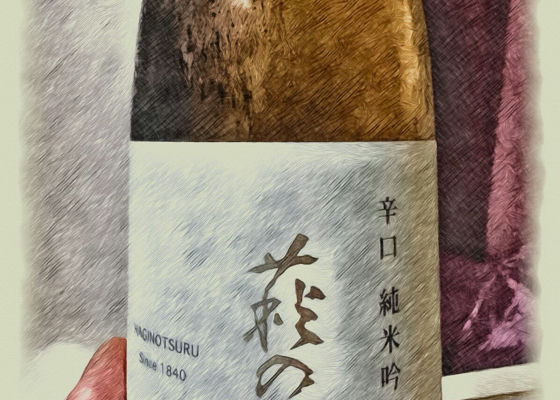 辛口 純米吟
萩の
HAGINOTSURU
Since 1840